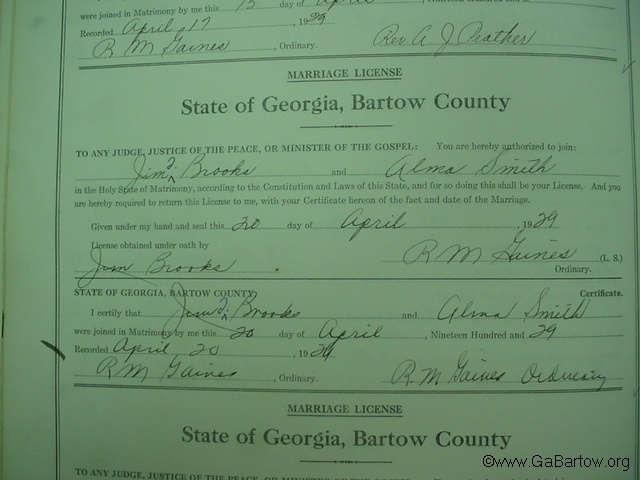 were joined in Matrimony by me this 13 day of April , Nineteen Hundred and
Recorded April 17 , 1929
R M Gaines , Ordinary. Rev A J Prather
MARRIAGE LICENSE
State of Georgia, Bartow County
TO ANY JUDGE, JUSTICE OF THE PEACE, OR MINISTER OF THE GOSPEL: You are hereby authorized to join:
Jim J. Brooks and Alma Smith
in the Holy State of Matrimony, according to the Constitution and Laws of this State, and for so doing this shall be your License. And you
are hereby required to return this License to me, with your Certificate hereon of the fact and date of the Marriage.
Given under my hand and seal this 20 day of April , 1929
License obtained under oath by R M Gaines (L. S.)
Jim Brooks Ordinary.
STATE OF GEORGIA, BARTOW COUNTY. Certificate.
I certify that Jim J. Brooks and Alma Smith
were joined in Matrimony by me this 20 day of April , Nineteen Hundred and 29
Recorded April 20 , 1929
R M Gaines , Ordinary. R. M Gaines Ordinary
MARRIAGE LICENSE
State of Georgia, Bartow County
TO ANY JUDGE, JUSTICE OF THE PEACE, OR MINISTER OF THE GOSPEL:
©www.GaBartow.org